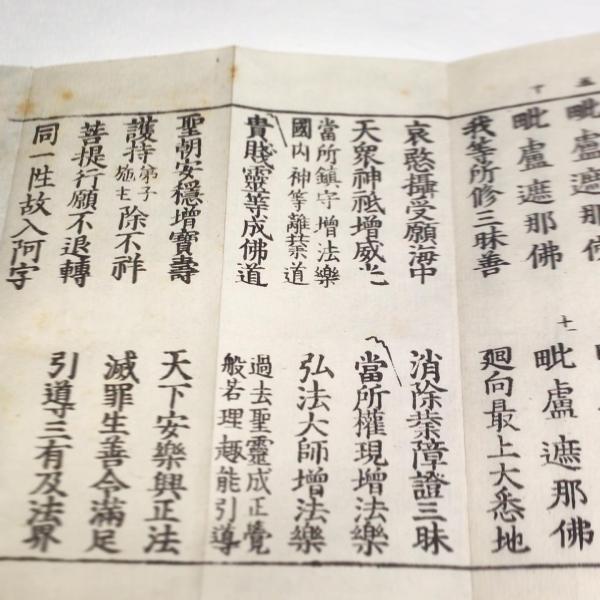 毗盧遮那佛
毗盧遮那佛
十一
毗盧遮那佛
我等所修三昧善
廻向最上大悉地
哀愍攝受願海中
消除業障證三昧
天衆神祇增威光
當所權現增法樂
當所鎮守增法樂
國内神等離業道
弘法大師增法樂
貴賤靈等成佛道
過去聖靈成正覺
般若理趣能引導
聖朝安穩增寶壽
天下安樂興正法
護持弟子施主除不祥
滅罪生善令滿足
菩提行願不退轉
引導三有及法界
同一性故入阿字